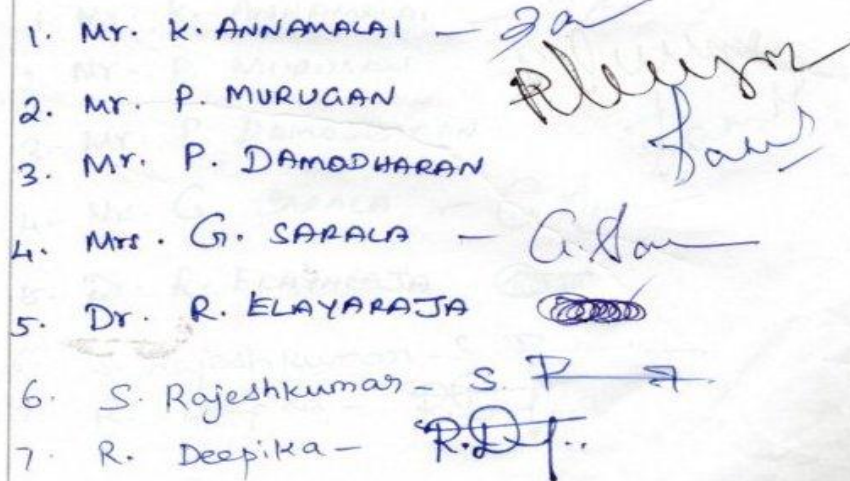 1. Mr. K. ANNAMALAI -
2. Mr. P. MURUGAN
3. Mr. P. DAMODHARAN
4. Mrs. G. SARALA - G.
5. Dr. R. ELAYARAJA
6. S. Rajeshkumar - S.
7. R. Deepika - R.D